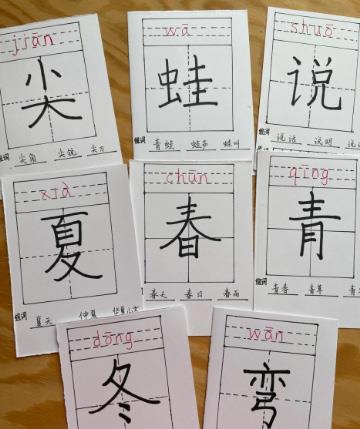 jiān
尖
组词 尖角 尖锐 尖刀
wā
蛙
组词 青蛙 蛙苗 蛙叫
shuō
说
组词 说话 说明
xià
夏
夏天 仲夏
chūn
春
春天 春日 春雨
qīng
青
组词 青春 青草
dōng
冬
wān
弯